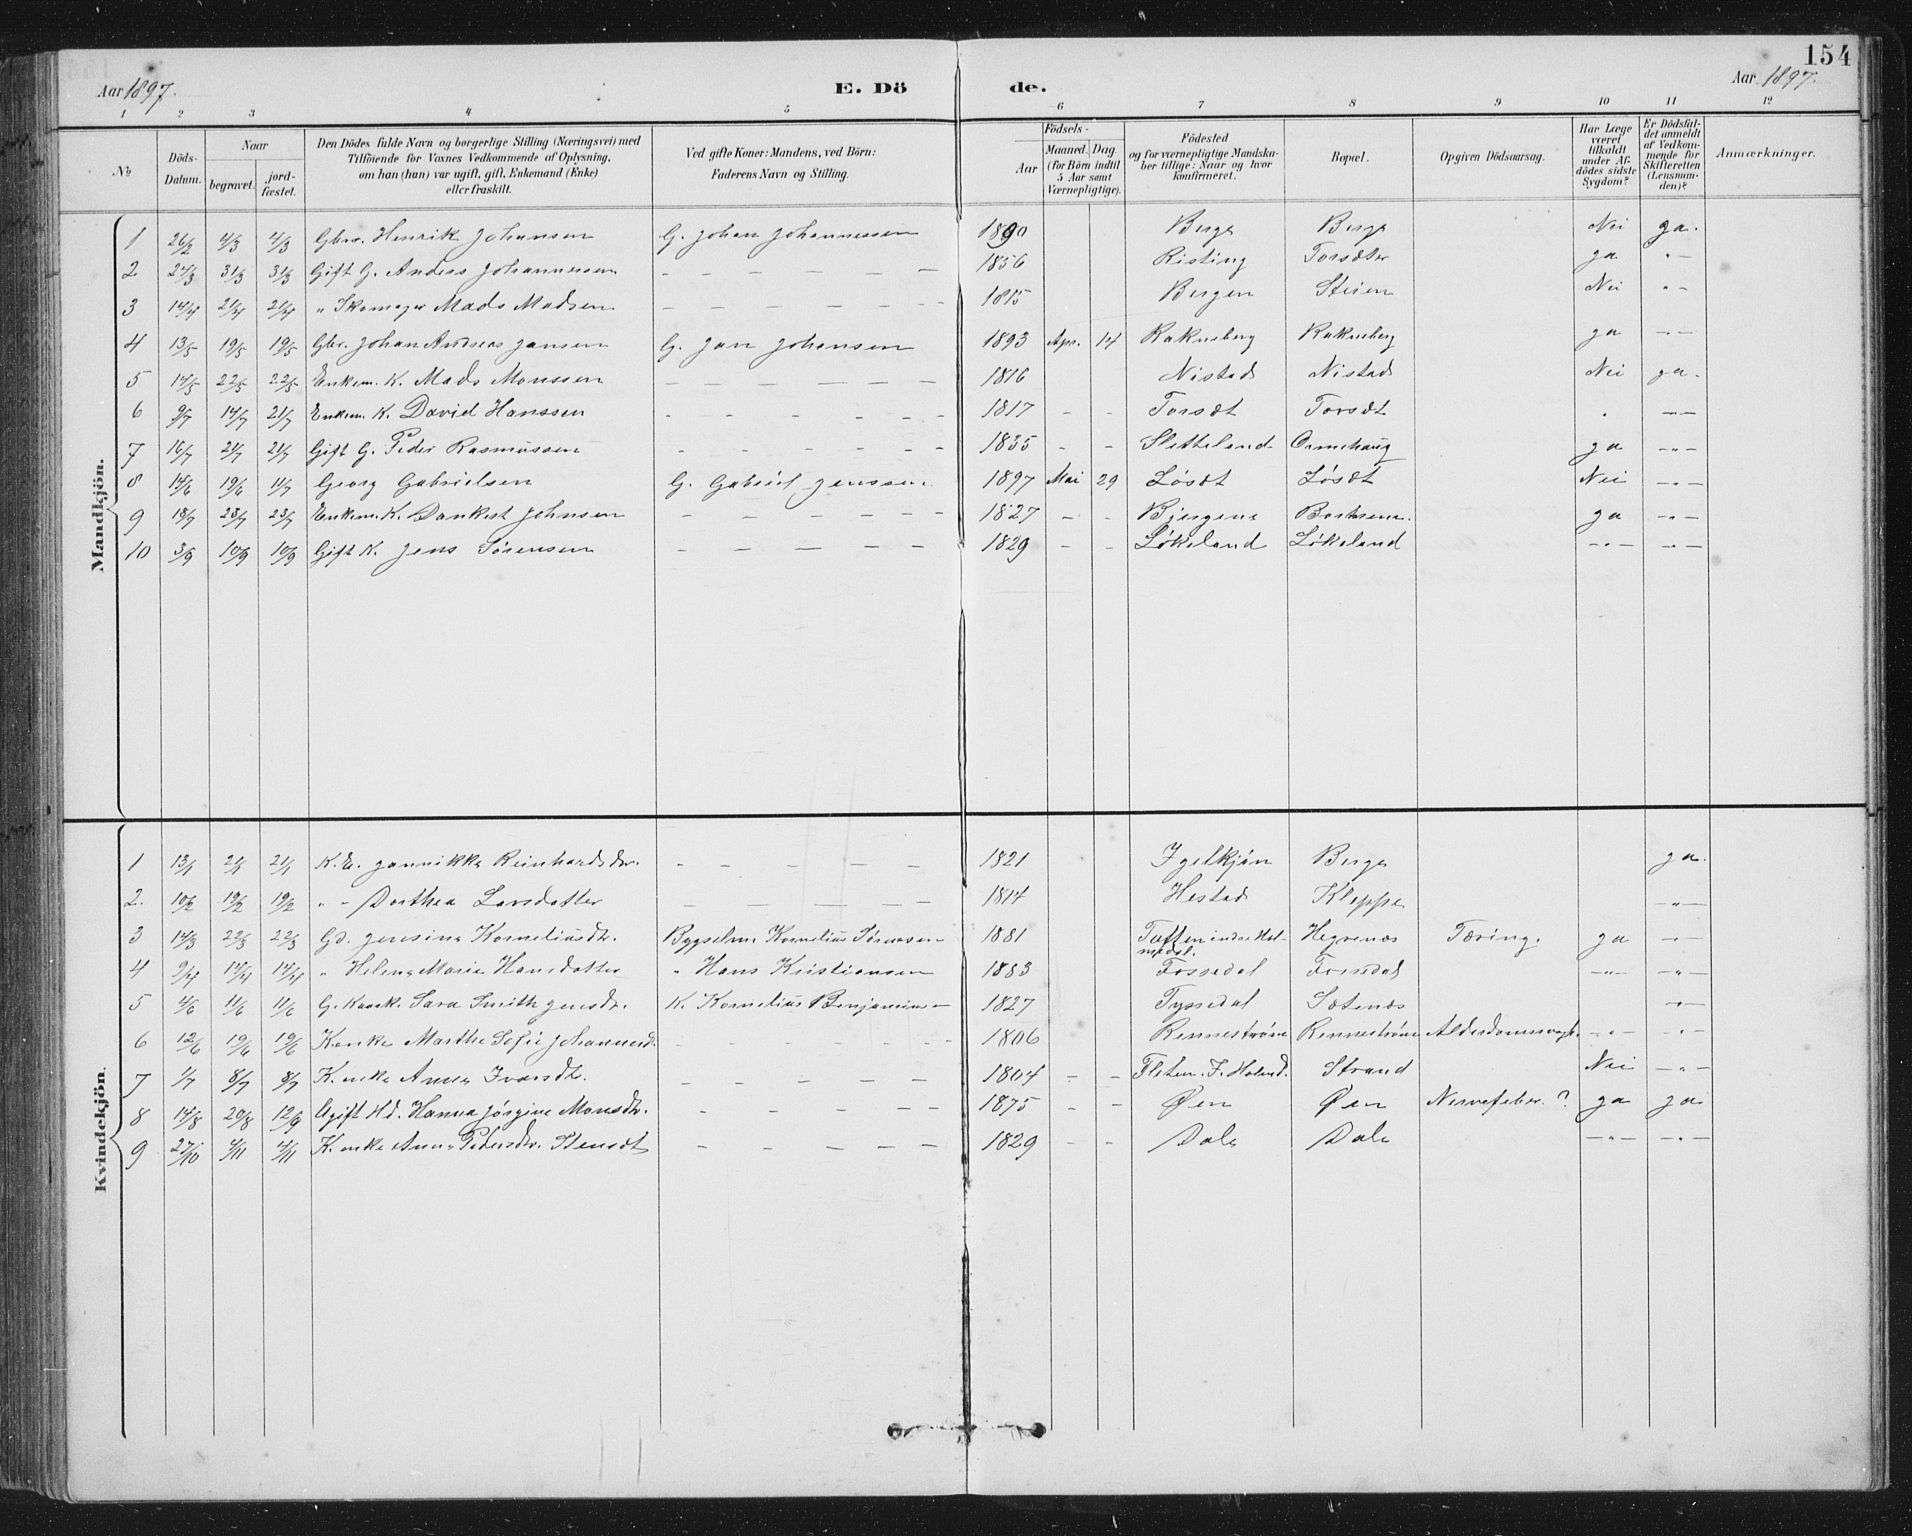 154
Aar 1897. E. Dö de. Aar 1897.
1 2 3 4 5 6 7 8 9 10 11 12
№ Döds-Datum. Naar begravet. jord-fæstet. Den Dödes fulde Navn og borgerlige Stilling (Næringsvei) med Tilföiende for Voxnes Vedkommende af Oplysning, om han (hun) var ugift, gift, Enkemand (Enke) eller fraskilt. Ved gifte Koner: Mandens, ved Börn: Faderens Navn og Stilling. Födsels- Aar Maaned. Dag. (for Börn indtil 5 Aar samt Værnepligtige). Födested og for værnepligtige Mandska-ber tillige: Naar og hvor konfirmeret. Bopæl. Opgiven Dödsaarsag. Har Læge været tilkaldt under Af-dödes sidste Sygdom? Er Dödsfal-det anmeldt af Vedkom-mende for Skifteretten (Lensman-den)? Anmærkninger.
Mandkjön.
1 26/2 4/3 4/3 Gbr. Henrik Johansen G. Johan Johannessen 1890 Berge Berge Nei ja.
2 24/3 31/3 31/3 Gift G. Anders Johannessen — — — 1856 Risting Torsæter ja - " -
3 14/4 21/4 21/4 " Skomager Mads Madsen — — — 1815 Bergen Steien Nei " -
4 13/5 19/5 19/5 Gbr. Johan Andreas Jansen G. Jan Johansen 1893 Apr. 14 Rakneberg Rakneberg ja - " -
5 14/5 22/5 22/5 Enkem. K. Mads Monssen — — — 1816 Nistad Nistad Nei ja.
6 9/7 14/7 21/7 Enkem. K. David Hanssen — — — 1817 - - Torsæt Torsæt - " -
7 16/7 21/7 21/7 Gift G. Peder Rasmussen — — — 1835 - - Sletteland Ormehaug ja - " -
8 14/6 19/6 11/7 Georg Gabrielsen G. Gabriel Jenssen 1897 Mai 29 Løsæt Løsæt Nei - " -
9 18/7 23/7 23/7 Enkem. K. Dankert Johnsen — — — 1827 - - Bjergene ja - " -
10 3/9 10/9 10/9 Gift K. Jens Sørensen — — — 1829 - - Løkeland Løkeland - " - - " -
Kvindekjön.
1 13/1 21/1 21/1 K. E. Jannikke Reinhardsdr. — — — 1821 Igelkjøn Berge ja.
2. 10/2 19/2 19/2 " - Dorthea Larsdatter — — — 1814 Hestad Kleppe - " -
3 14/3 22/3 22/3 Gd. Jensine Korneliusdr. Bygselm. Kornelius Sørensen 1881 Tæften indre Hol-medal. Hegrenæs Tæring. ja - " -
4 9/4 14/4 14/4 " Helene Marie Hansdatter " Hans Kristiansen 1883 Fossedal Fossedal - " - - " -
5 4/6 11/6 11/6 G. Kaark. Sara Smith Jensdr. K. Kornelius Benjaminsen 1827 Tyssedal Sætenæs - " -
6 12/6 19/6 19/6 Kenke Marthe Sofie Johannesd. — — — 1806 Rennestrøm Rennestrøm Alderdomssvagh. - " - - " -
7 1/7 8/7 8/7 K. enke Anna Ivarsdr. — — — 1804 - - Fleten. I. Holmd. Strand Nei - " -
8 14/8 20/8 12/9 Ugift Hd. Hanna Jørgine Monsdr. — — — 1875 - - Øen Øen Nervefeber. ? ja ja
9 27/10 4/11 4/11 K. enke Anne Pedersdr. Stensæt — — — 1829 - - Dale Dale - " - - " -